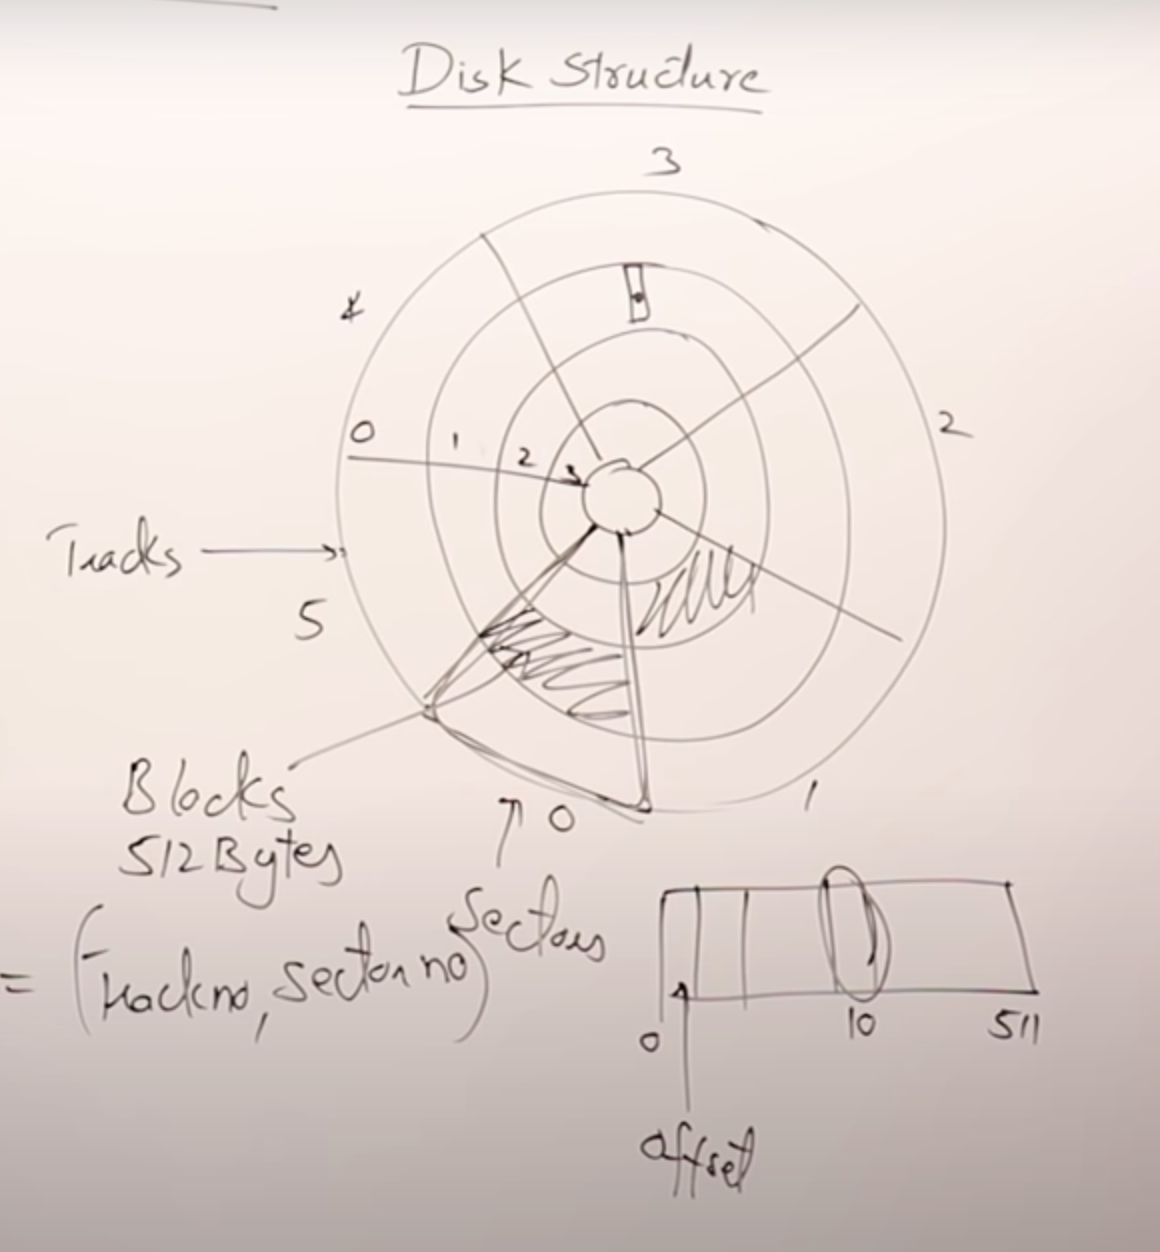 Disk Structure
3
4
2
0 1 2 3
Tracks
5
1
0
Blocks
512 Bytes
Sectors
= (Track no, sector no)
0 10 511
offset